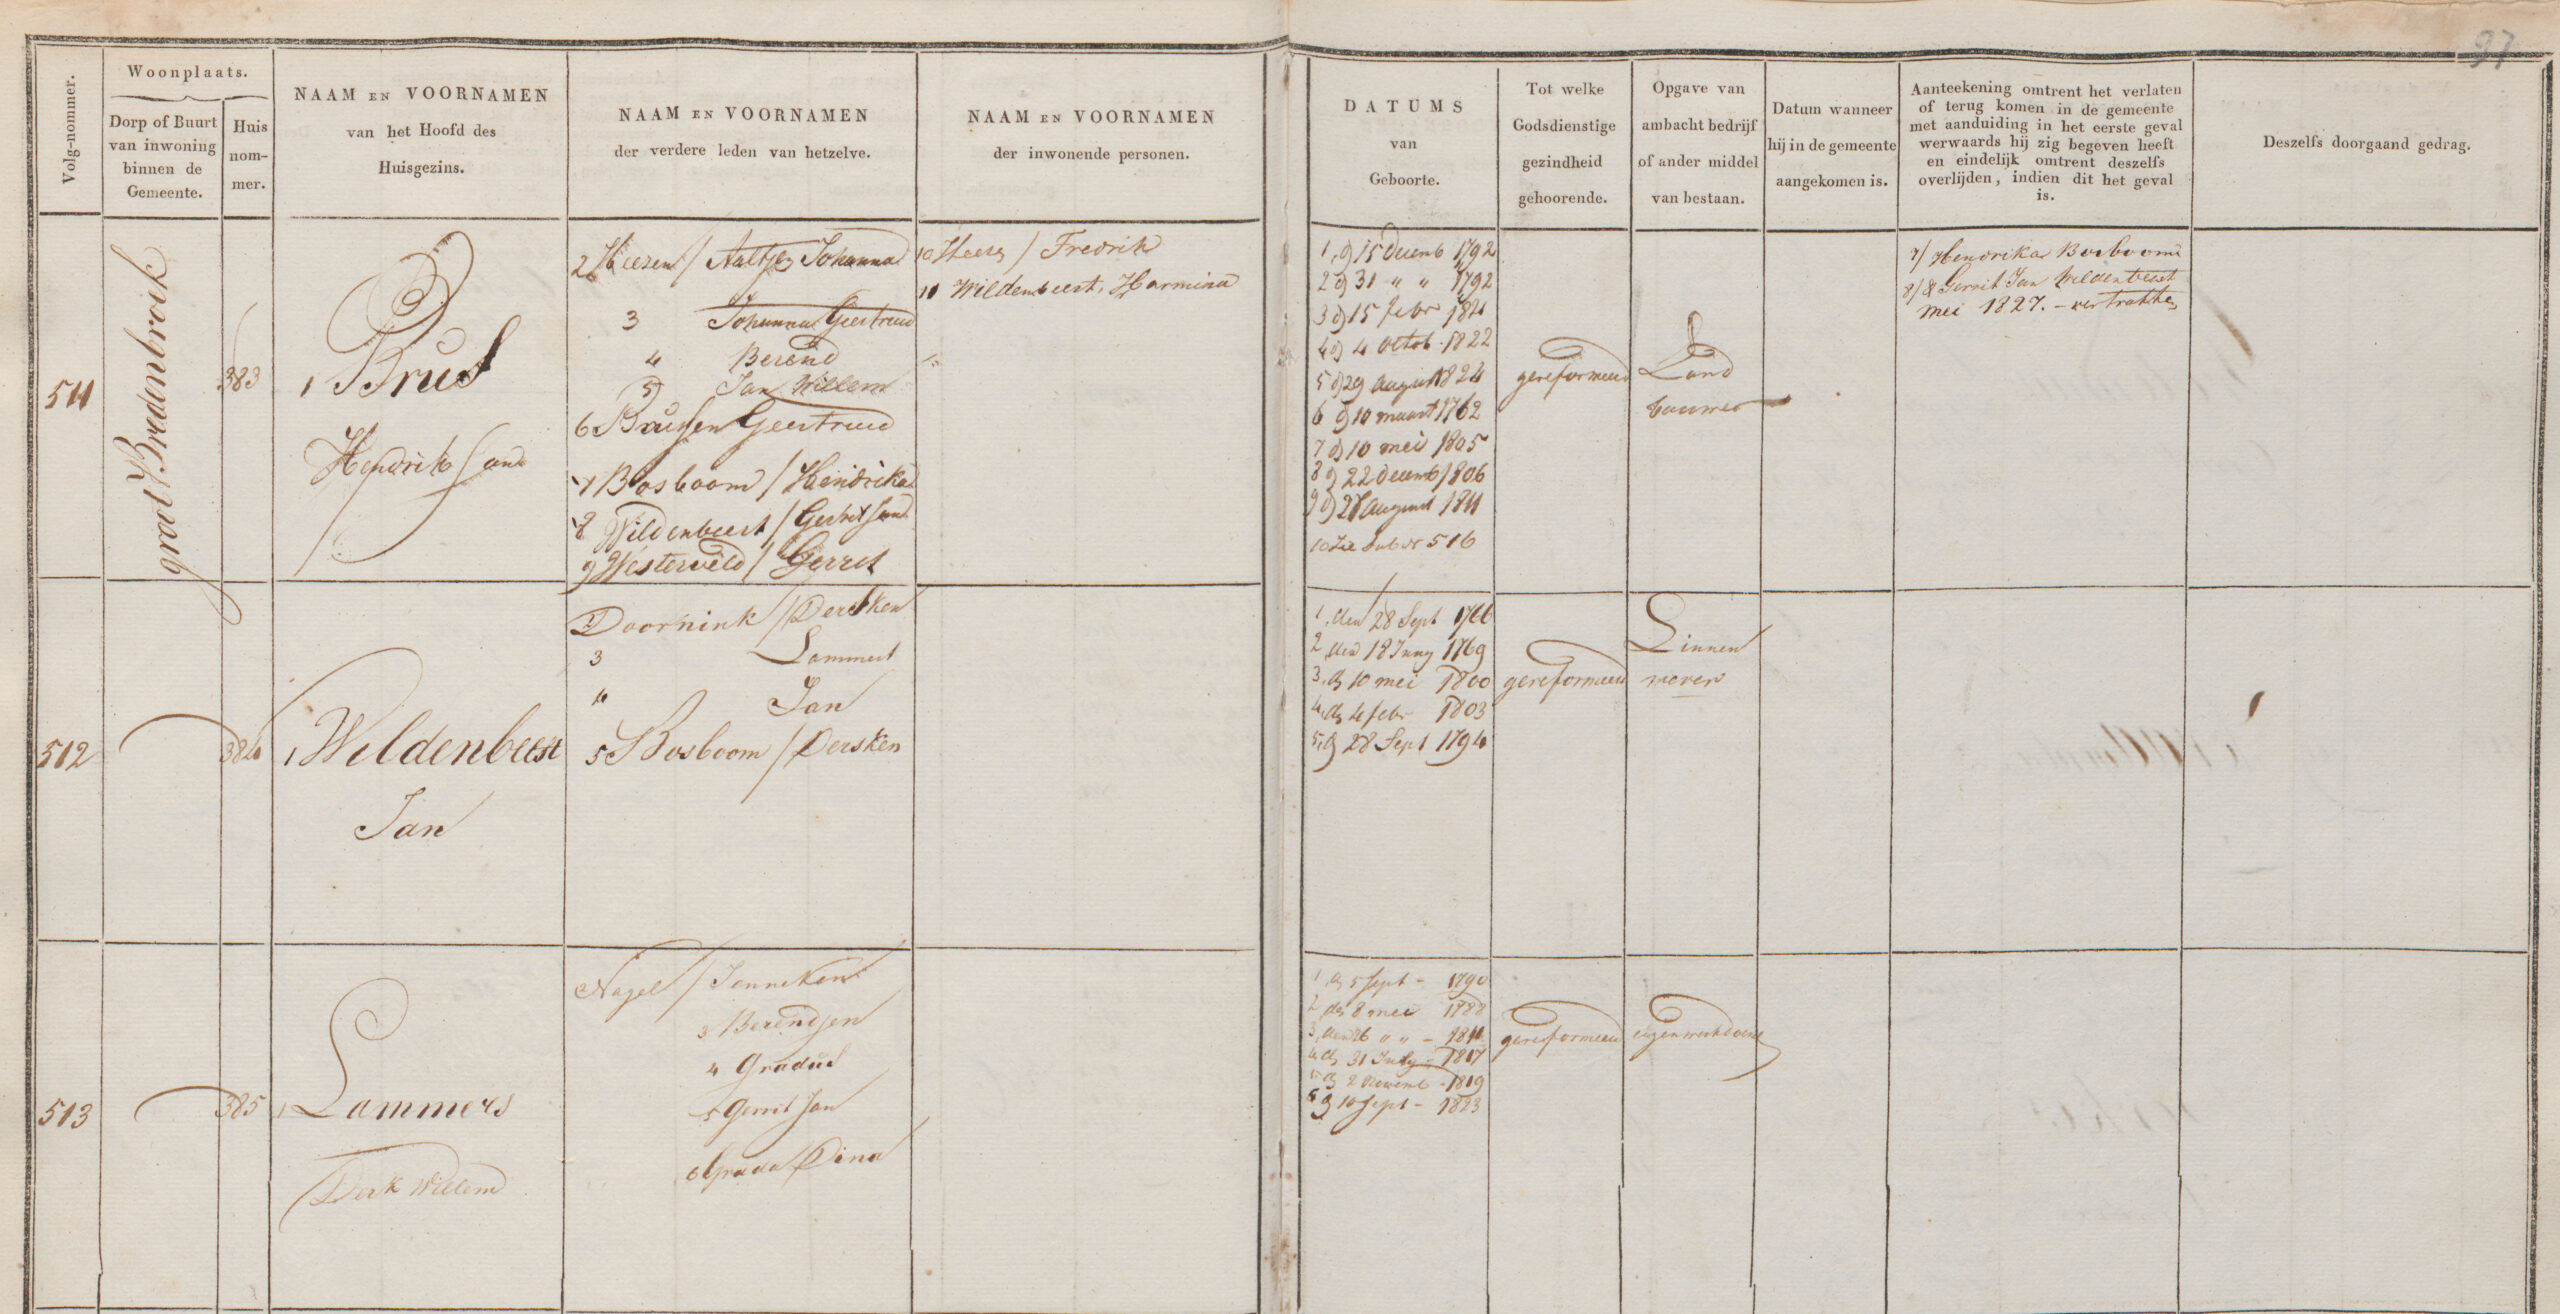 97
Volg-nommer.
Woonplaats.
Dorp of Buurt
van inwoning
binnen de
Gemeente.
Huis
nom-
mer.
NAAM EN VOORNAMEN
van het Hoofd des
Huisgezins.
NAAM EN VOORNAMEN
der verdere leden van hetzelve.
NAAM EN VOORNAMEN
der inwonende personen.
DATUMS
van
Geboorte.
Tot welke
Godsdienstige
gezindheid
gehoorende.
Opgave van
ambacht bedrijf
of ander middel
van bestaan.
Datum wanneer
hij in de gemeente
aangekomen is.
Aanteekening omtrent het verlaten
of terug komen in de gemeente
met aanduiding in het eerste geval
werwaards hij zig begeven heeft
en eindelijk omtrent deszelfs
overlijden, indien dit het geval
is.
Deszelfs doorgaand gedrag.
511
groot Bredenbroik
383
1 Brus
Hendrik Jan
2 / Aaltjen Johanna
3 Johanna Geertruid
4 Berend
5 Jan Willem
6 Brussen Geertruid
7 Bosboom / Hendrika
8 Wildenbeest / Gerrit Jan
9 Westerveld / Gerrit
10 Heers / Fredrik
11 Wildenbeest, Harmina
1 d 15 Decemb 1792
2 d 31 " " 1792
3 d 15 febr 1821
4 d 4 octob 1822
5 d 29 august 1824
6 d 10 maart 1762
7 d 10 mei 1805
8 d 22 decemb 1806
9 d 28 august 1811
10 Zie 516
gereformeerd
Land
bouwer
7/ Hendrika Bosboom
8/ Gerrit Jan Wildenbeest
mei 1827. - vertrokken
512
384
1 Wildenbeest
Jan
2 Doornink / Dersken
3 Lammert
4 Jan
5 Bosboom / Dersken
1 den 28 Sept 1766
2 den 18 Juny 1769
3 d 10 mei 1800
4 d 4 febr 1803
5 d 28 Sept 1794
gereformeerd
Linnen
wever
513
385
1 Lammers
Derk Willem
Nagel / Jenneken
3 Berendjen
4 Gradus
5 Gerrit Jan
6 Grada Dina
1 d 5 Sept - 1790
2 den 8 mei 1788
3 den 26 " " - 1811
4 d 31 July - 1817
5 d 2 Novemb - 1819
6 d 10 Sept - 1823
gereformeerd
eigenwerkdoend